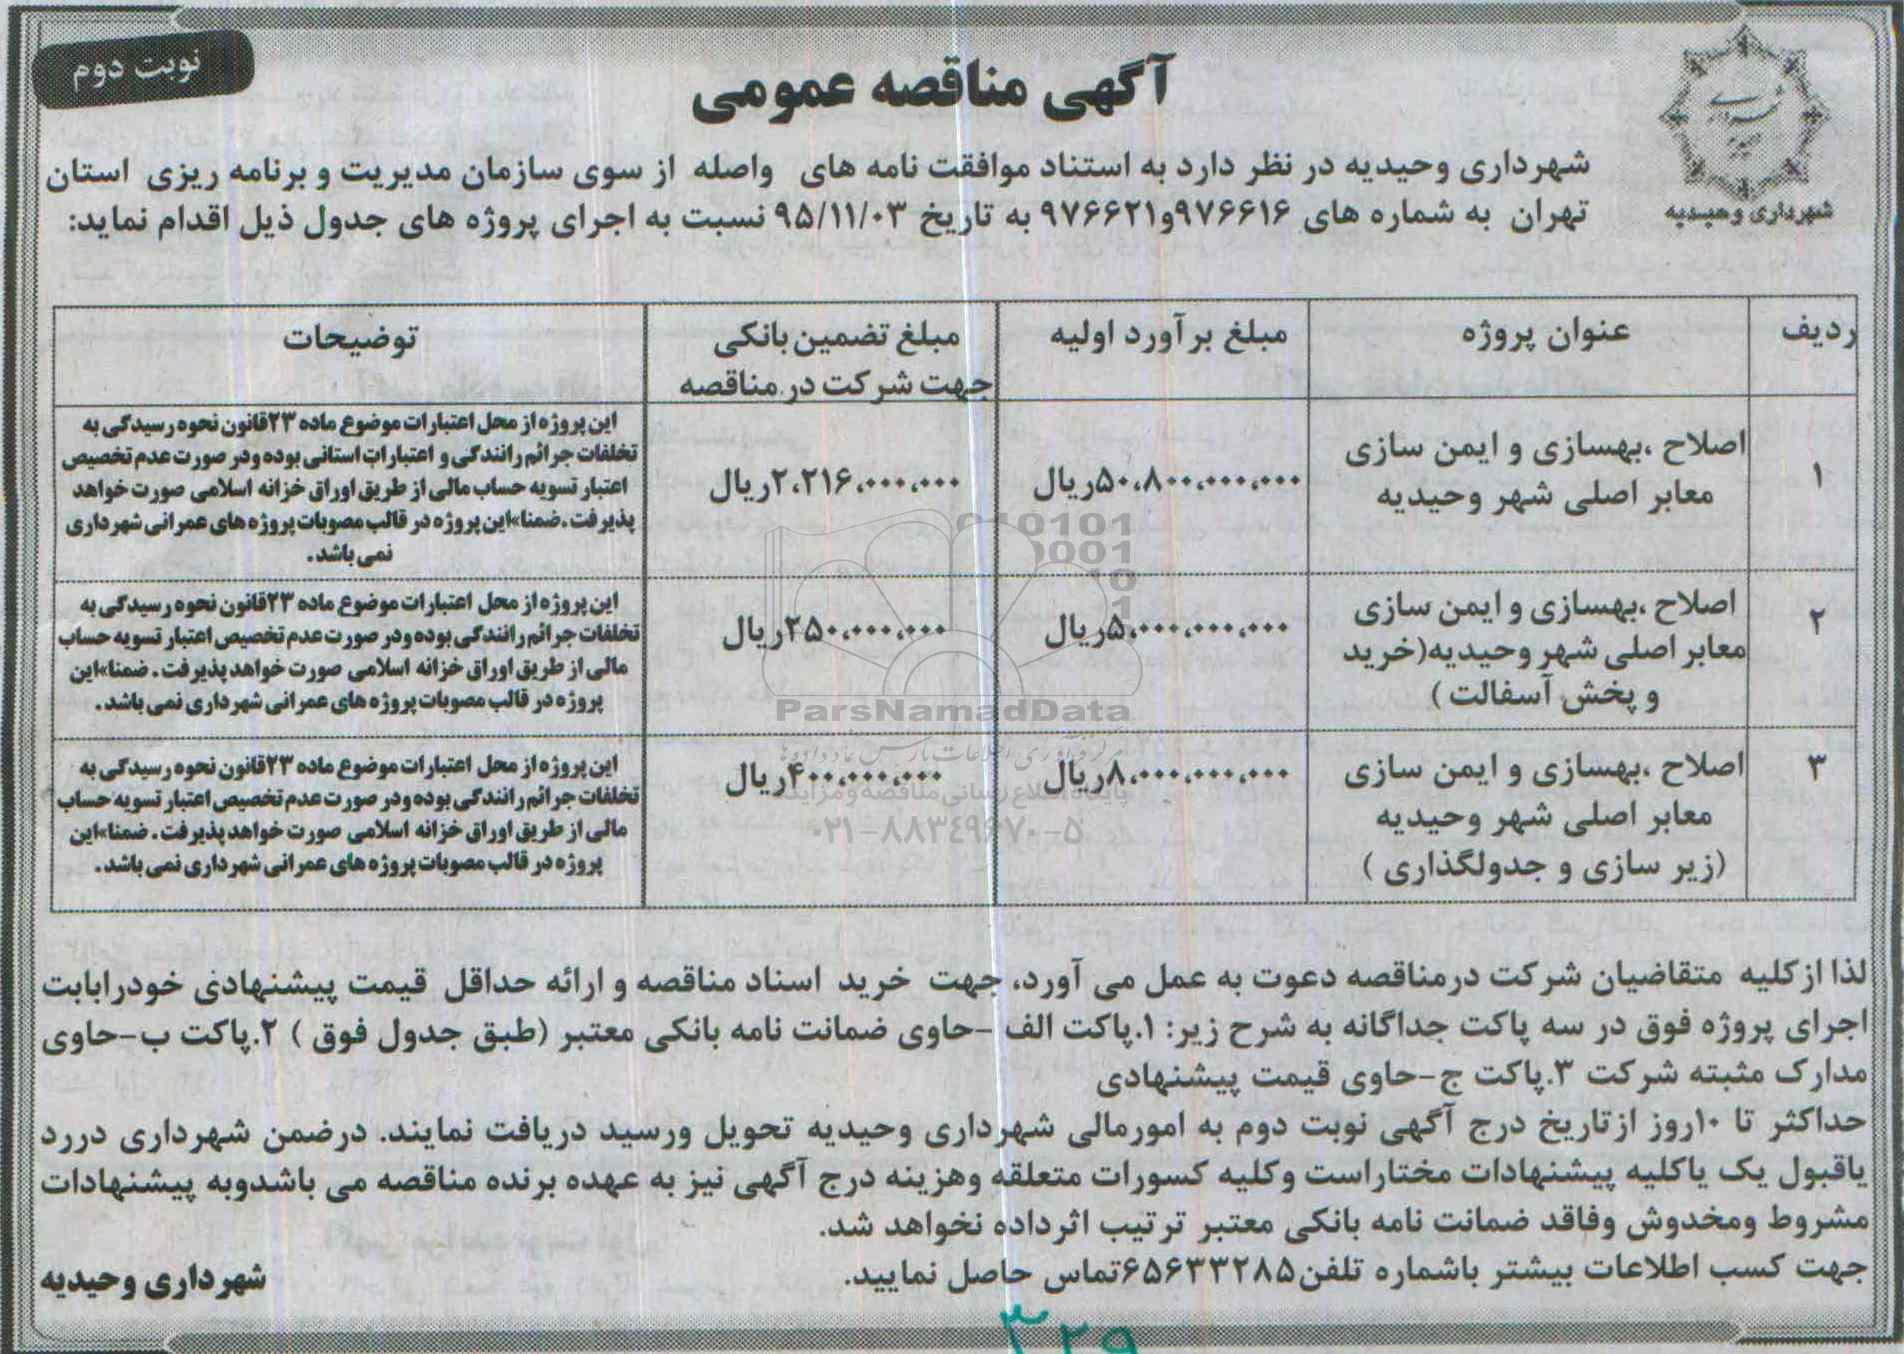 نوبت دوم
آگهی مناقصه عمومی
شهرداری وحیدیه
شهرداری وحیدیه در نظر دارد به استناد موافقت نامه های واصله از سوی سازمان مدیریت و برنامه ریزی استان
تهران به شماره های ۹۷۶۶۱۶و۹۷۶۶۲۱ به تاریخ ۹۵/۱۱/۰۳ نسبت به اجرای پروژه های جدول ذیل اقدام نماید:
ردیف
عنوان پروژه
مبلغ برآورد اولیه
مبلغ تضمین بانکی
جهت شرکت در مناقصه
توضیحات
۱
اصلاح ،بهسازی و ایمن سازی
معابر اصلی شهر وحیدیه
۵۰،۸۰۰،۰۰۰،۰۰۰ریال
۲،۲۱۶،۰۰۰،۰۰۰ریال
این پروژه از محل اعتبارات موضوع ماده ۲۳قانون نحوه رسیدگی به
تخلفات جرائم رانندگی و اعتبارات استانی بوده ودر صورت عدم تخصیص
اعتبار تسویه حساب مالی از طریق اوراق خزانه اسلامی صورت خواهد
پذیرفت.ضمنا»این پروژه در قالب مصوبات پروژه های عمرانی شهرداری
نمی باشد.
۲
اصلاح ،بهسازی و ایمن سازی
معابر اصلی شهر وحیدیه(خرید
و پخش آسفالت )
۵،۰۰۰،۰۰۰،۰۰۰ریال
۲۵۰،۰۰۰،۰۰۰ریال
این پروژه از محل اعتبارات موضوع ماده ۲۳قانون نحوه رسیدگی به
تخلفات جرائم رانندگی بوده ودر صورت عدم تخصیص اعتبار تسویه حساب
مالی از طریق اوراق خزانه اسلامی صورت خواهد پذیرفت. ضمنا»این
پروژه در قالب مصوبات پروژه های عمرانی شهرداری نمی باشد.
۳
اصلاح ،بهسازی و ایمن سازی
معابر اصلی شهر وحیدیه
(زیر سازی و جدولگذاری )
۸،۰۰۰،۰۰۰،۰۰۰ریال
۴۰۰،۰۰۰،۰۰۰ریال
این پروژه از محل اعتبارات موضوع ماده ۲۳قانون نحوه رسیدگی به
تخلفات جرائم رانندگی بوده ودر صورت عدم تخصیص اعتبار تسویه حساب
مالی از طریق اوراق خزانه اسلامی صورت خواهد پذیرفت. ضمنا»این
پروژه در قالب مصوبات پروژه های عمرانی شهرداری نمی باشد.
ParsNamadData
مرکز فرآوری اطلاعات پارس نماد داده ها
پایگاه اطلاع رسانی مناقصه و مزایده
۰۲۱-۸۸۳۴۹۶۷۰-۵
لذا ازکلیه متقاضیان شرکت درمناقصه دعوت به عمل می آورد، جهت خرید اسناد مناقصه و ارائه حداقل قیمت پیشنهادی خودرابابت
اجرای پروژه فوق در سه پاکت جداگانه به شرح زیر: ۱.پاکت الف -حاوی ضمانت نامه بانکی معتبر (طبق جدول فوق ) ۲.پاکت ب-حاوی
مدارک مثبته شرکت ۳.پاکت ج-حاوی قیمت پیشنهادی
حداکثر تا ۱۰روز ازتاریخ درج آگهی نوبت دوم به امورمالی شهرداری وحیدیه تحویل ورسید دریافت نمایند. درضمن شهرداری دررد
یاقبول یک یاکلیه پیشنهادات مختاراست وکلیه کسورات متعلقه وهزینه درج آگهی نیز به عهده برنده مناقصه می باشدوبه پیشنهادات
مشروط ومخدوش وفاقد ضمانت نامه بانکی معتبر ترتیب اثرداده نخواهد شد.
جهت کسب اطلاعات بیشتر باشماره تلفن۶۵۶۳۳۲۸۵تماس حاصل نمایید.
شهرداری وحیدیه
۳۲۹